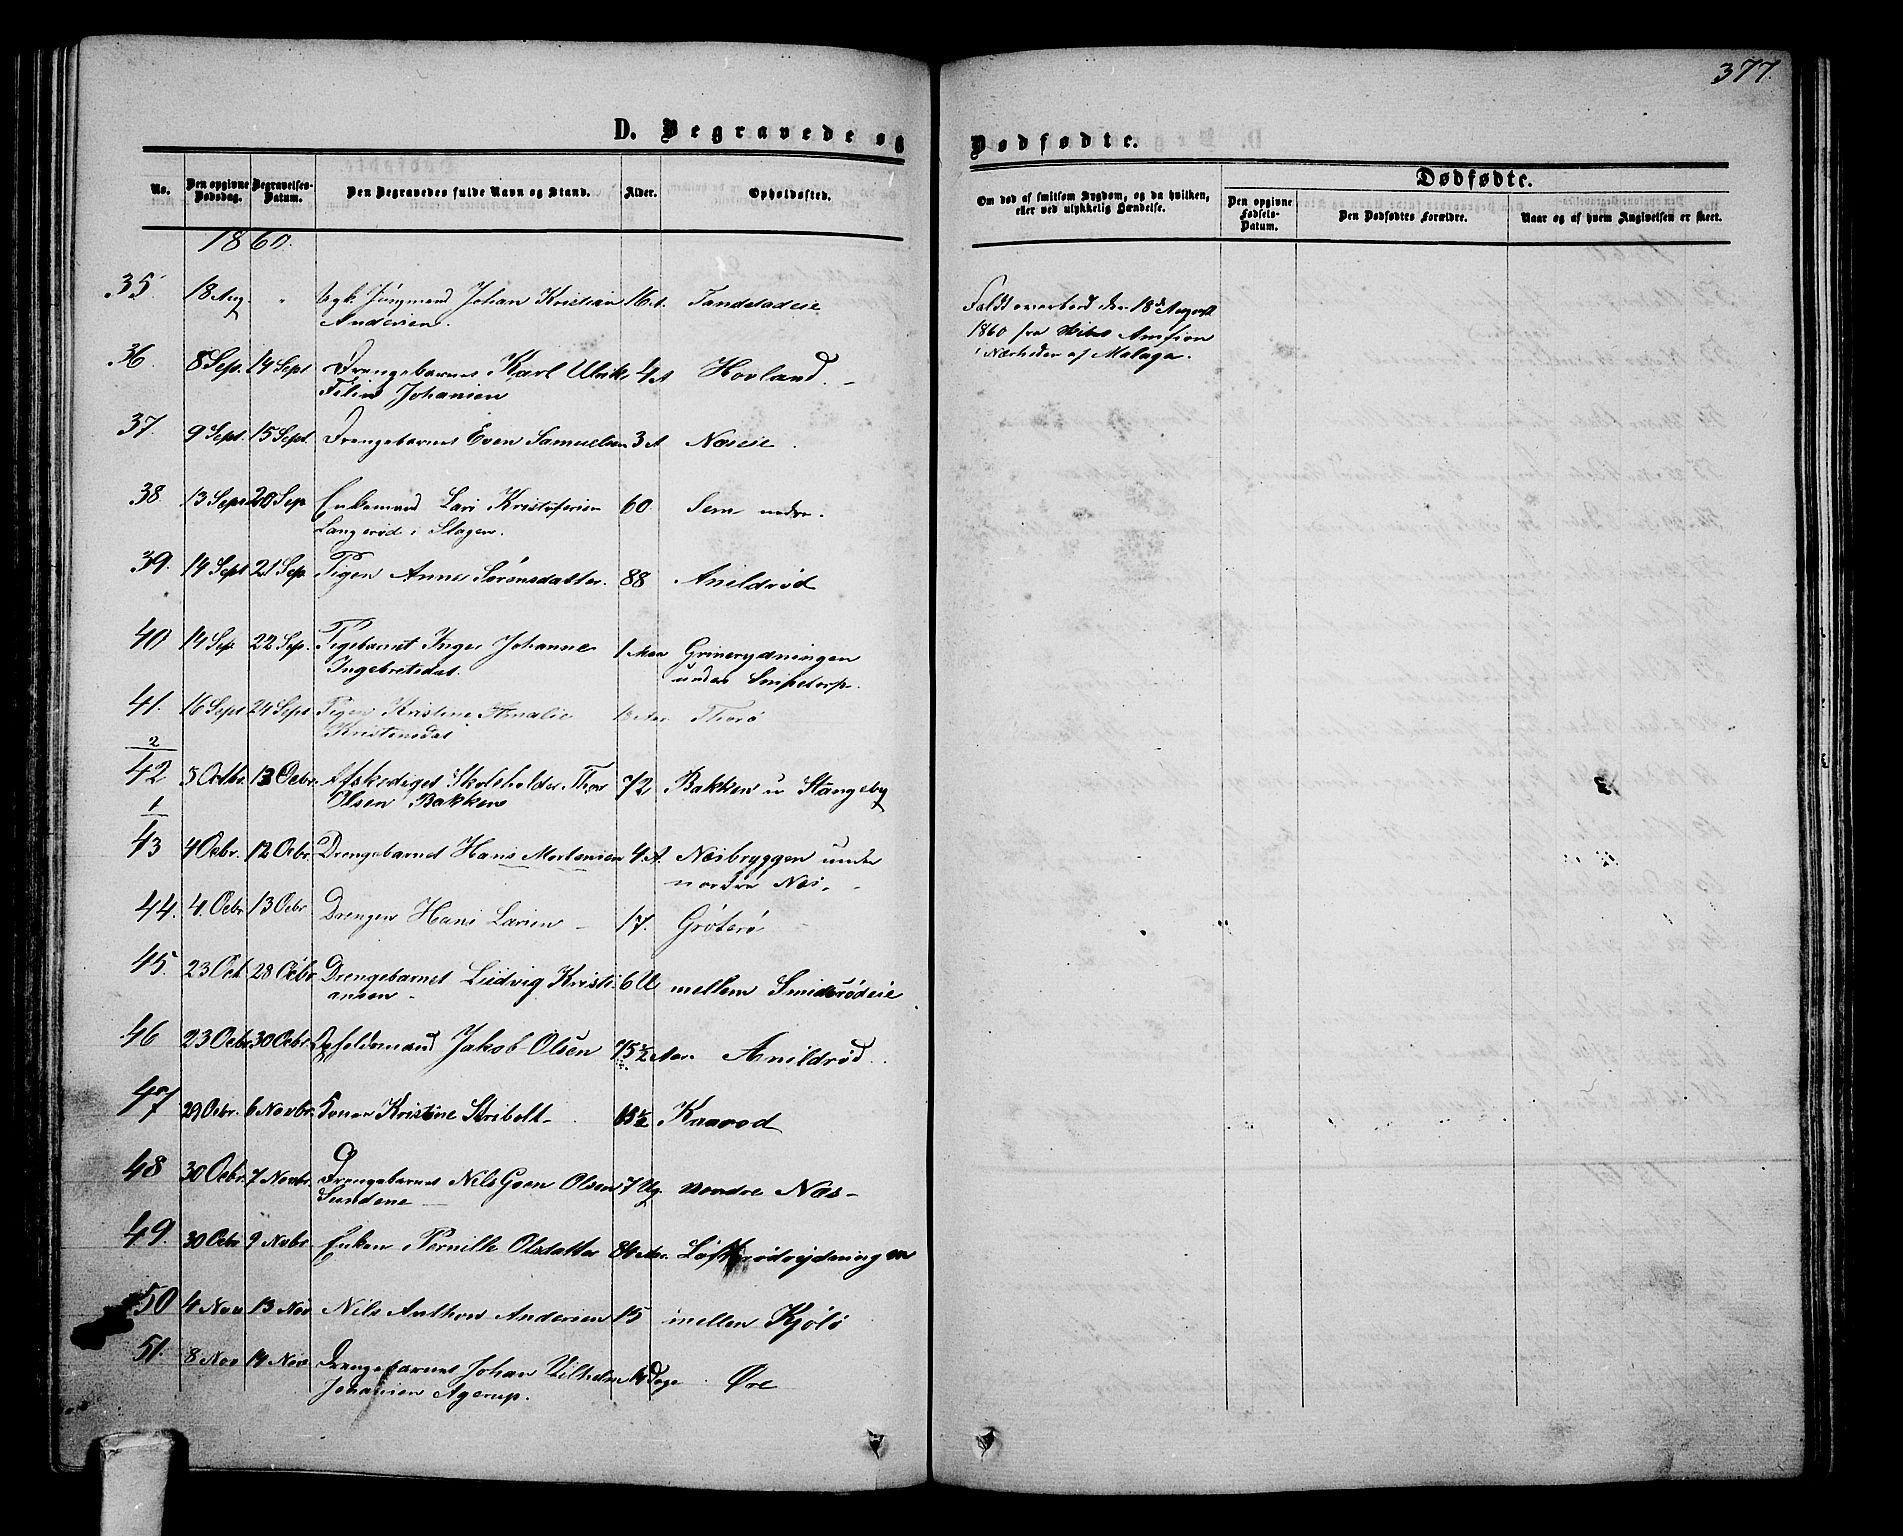 377.
D. Begravede og
Dødfødte.
No.
Den opgivne Dødsdag.
Begravelses-Datum.
Den Begravedes fulde Navn og Stand.
Alder.
Opholdssted.
Om død af smitsom Sygdom, og da hvilken, eller ved ulykkelig Hændelse.
Dødfødte.
Den opgivne Fødsels-Datum.
Den Dødfødtes Forældre.
Naar og af hvem Angivelsen er skeet.
1860.
35. 18 Aug. " Ugk. Jungmand Johan Kristian 16 A. Tandstadeie
Andersen.
Faldt overbord den 18de August
1860 fra Amfion
i Nærheden af Malaga.
36. 8 Sep. 14 Sept Drengebarnet Karl Ulrik 4 A Hovland.
Johansen
37. 9 Sept. 15 Sept. Drengebarnet Even Samuelsen 3 A Næseie.
38. 13 Sept 20 Sep Enkemand Lars Kristofersen 60. Sem nedre.
Langerød i Slagen.
39. 14 Sept 21 Sep. Pigen Anne Sørensdatter. 88 Anildrød
40 14 Sep 22 Sep. Pigebarnet Inger Johanne 1 Maa Grinerydningen
Ingebretsdat. under
41. 16 Sept 24 Sept Pigen Kristine Amalie Thorø
Kristensdat
2
42 5 Octbr. 13 Ocbr. Afskediget Skoleholder Thor 72 Bakken u Stangeby
Olsen Bakken
1
43 4 Ocbr. 12 Ocbr. Drengebarnet Hans Mortensen 4 A. Næsbryggen under
nordre Næs.
44. 4. Ocbr 13 Ocbr Drengen Hans Larsen 17. Grøterø
45. 23 Oct. 28 Ocbr Drengebarnet Ludvig Kristi- 6 U mellem Smidsrødeie
ansen
46 23 Ocbr 30 Ocbr. Jakob Olsen 75½ Aar. Anildrød.
47 29 Ocbr. 6 Novbr. Konen Kristine Stribolt Kaarod
48 30 Ocbr. 7 Novbr. Drengebarnet Nils Olsen 7 Ug. nordre Næs
Sundene
49. 30 Ocbr 9 Nobr Enken Pernille Olsdatter 84 Aar.
50 4 Nov 13 Nov Nils Anthon Andersen 15 mellem Kjølø
51. 8 Nov 14 Nov Drengebarnet Johan Vilhelm Dage Øre
Johansen Agerup.